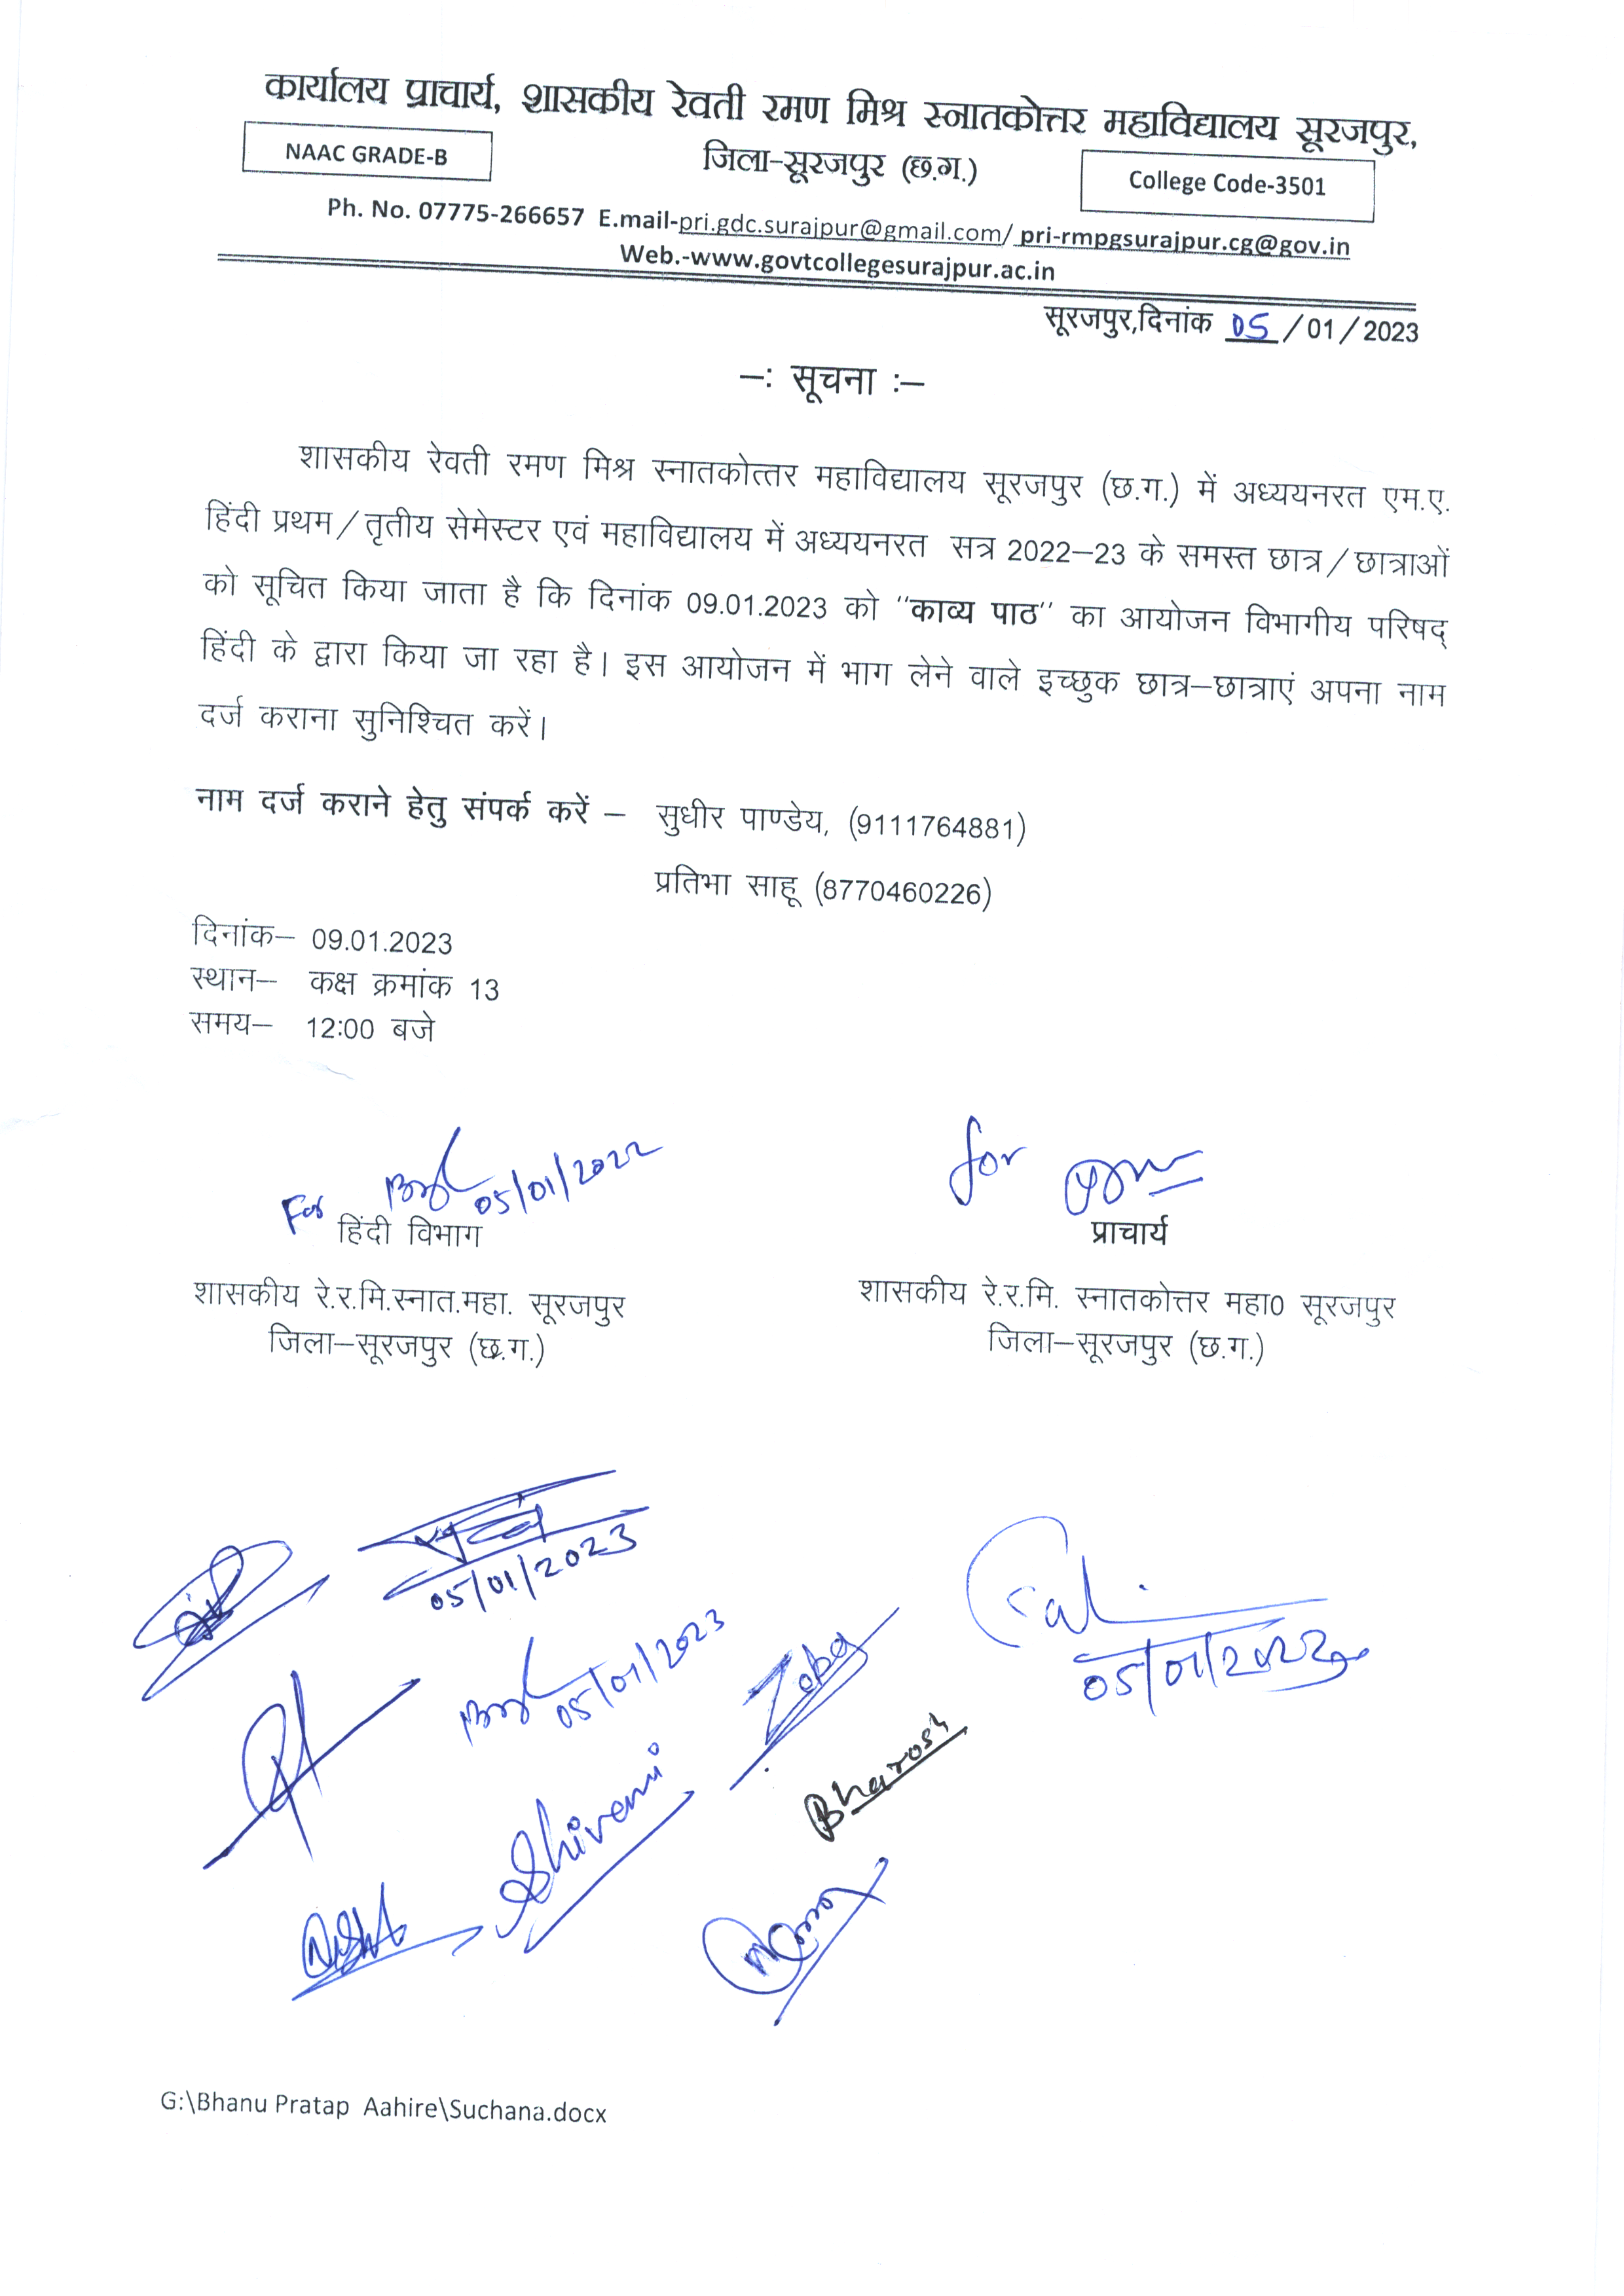 कार्यालय प्राचार्य, शासकीय रेवती रमण मिश्र स्नातकोत्तर महाविद्यालय सूरजपुर,
NAAC GRADE-B
जिला-सूरजपुर (छ.ग.)
College Code-3501
Ph. No. 07775-266657 E.mail-pri.gdc.surajpur@gmail.com/ pri-rmpgsurajpur.cg@gov.in
Web.-www.govtcollegesurajpur.ac.in
सूरजपुर,दिनांक 05/01/2023
–: सूचना :–
शासकीय रेवती रमण मिश्र स्नातकोत्तर महाविद्यालय सूरजपुर (छ.ग.) में अध्ययनरत एम.ए.
हिंदी प्रथम/तृतीय सेमेस्टर एवं महाविद्यालय में अध्ययनरत सत्र 2022–23 के समस्त छात्र/छात्राओं
को सूचित किया जाता है कि दिनांक 09.01.2023 को "काव्य पाठ" का आयोजन विभागीय परिषद्
हिंदी के द्वारा किया जा रहा है। इस आयोजन में भाग लेने वाले इच्छुक छात्र–छात्राएं अपना नाम
दर्ज कराना सुनिश्चित करें।
नाम दर्ज कराने हेतु संपर्क करें – सुधीर पाण्डेय, (9111764881)
प्रतिभा साहू (8770460226)
दिनांक– 09.01.2023
स्थान– कक्ष क्रमांक 13
समय– 12:00 बजे
For 05/01/2022
for
हिंदी विभाग
प्राचार्य
शासकीय रे.र.मि.स्नात.महा. सूरजपुर
शासकीय रे.र.मि. स्नातकोत्तर महा0 सूरजपुर
जिला–सूरजपुर (छ.ग.)
जिला–सूरजपुर (छ.ग.)
05/01/2023
05/01/2023
Bharosh
Shivani
G:\Bhanu Pratap Aahire\Suchana.docx